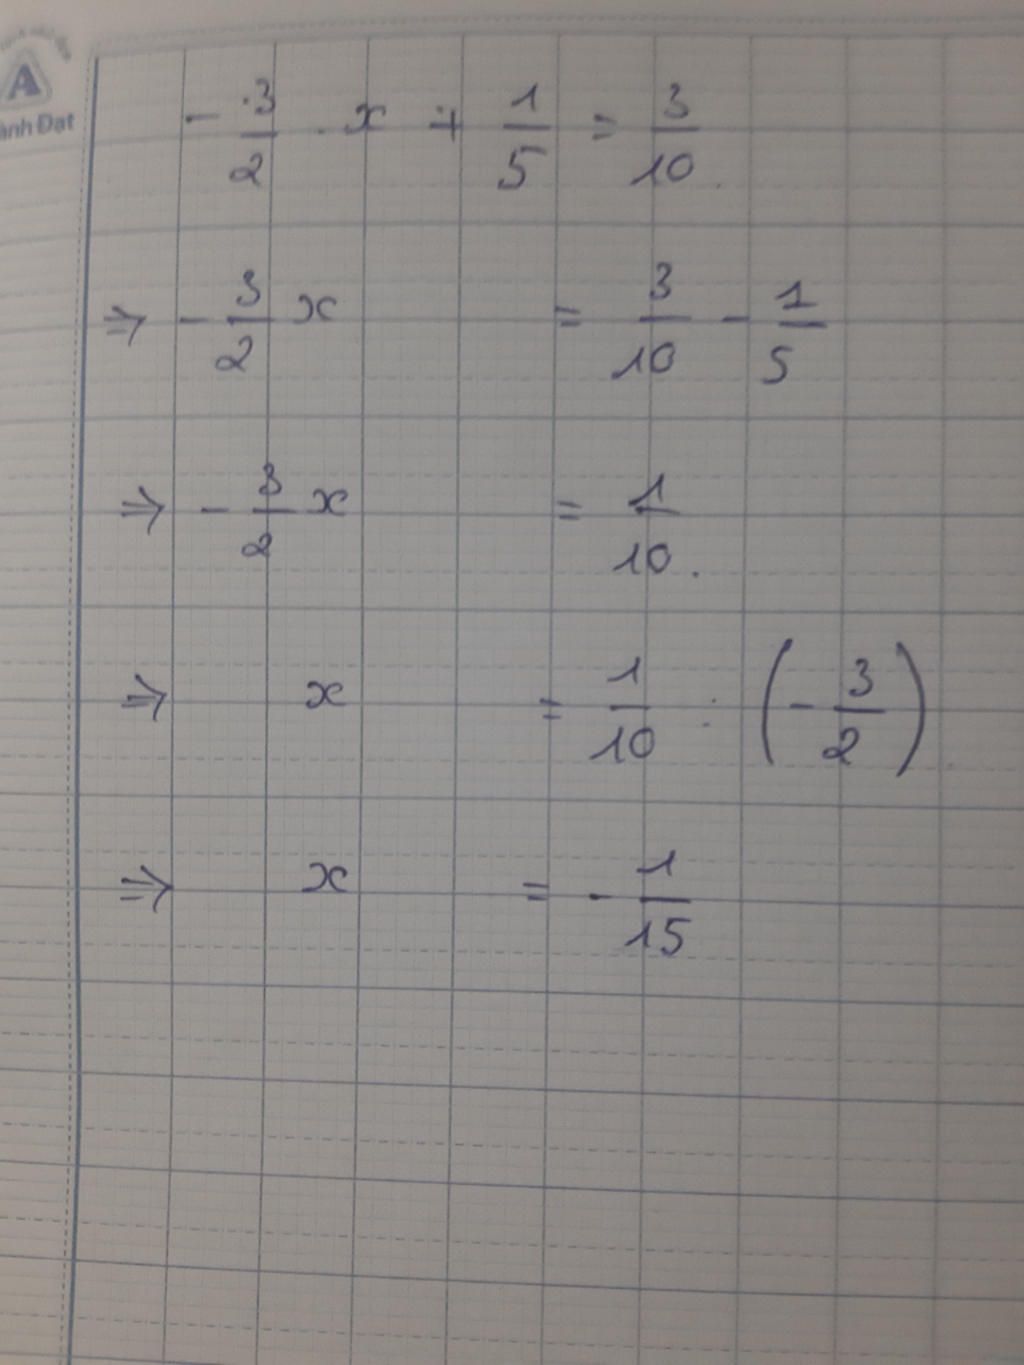 A
ành Đạt
- 3/2 . x + 1/5 = 3/10
⇒ - 3/2 x = 3/10 - 1/5
⇒ - 3/2 x = 1/10.
⇒ x = 1/10 : (- 3/2)
⇒ x = - 1/15